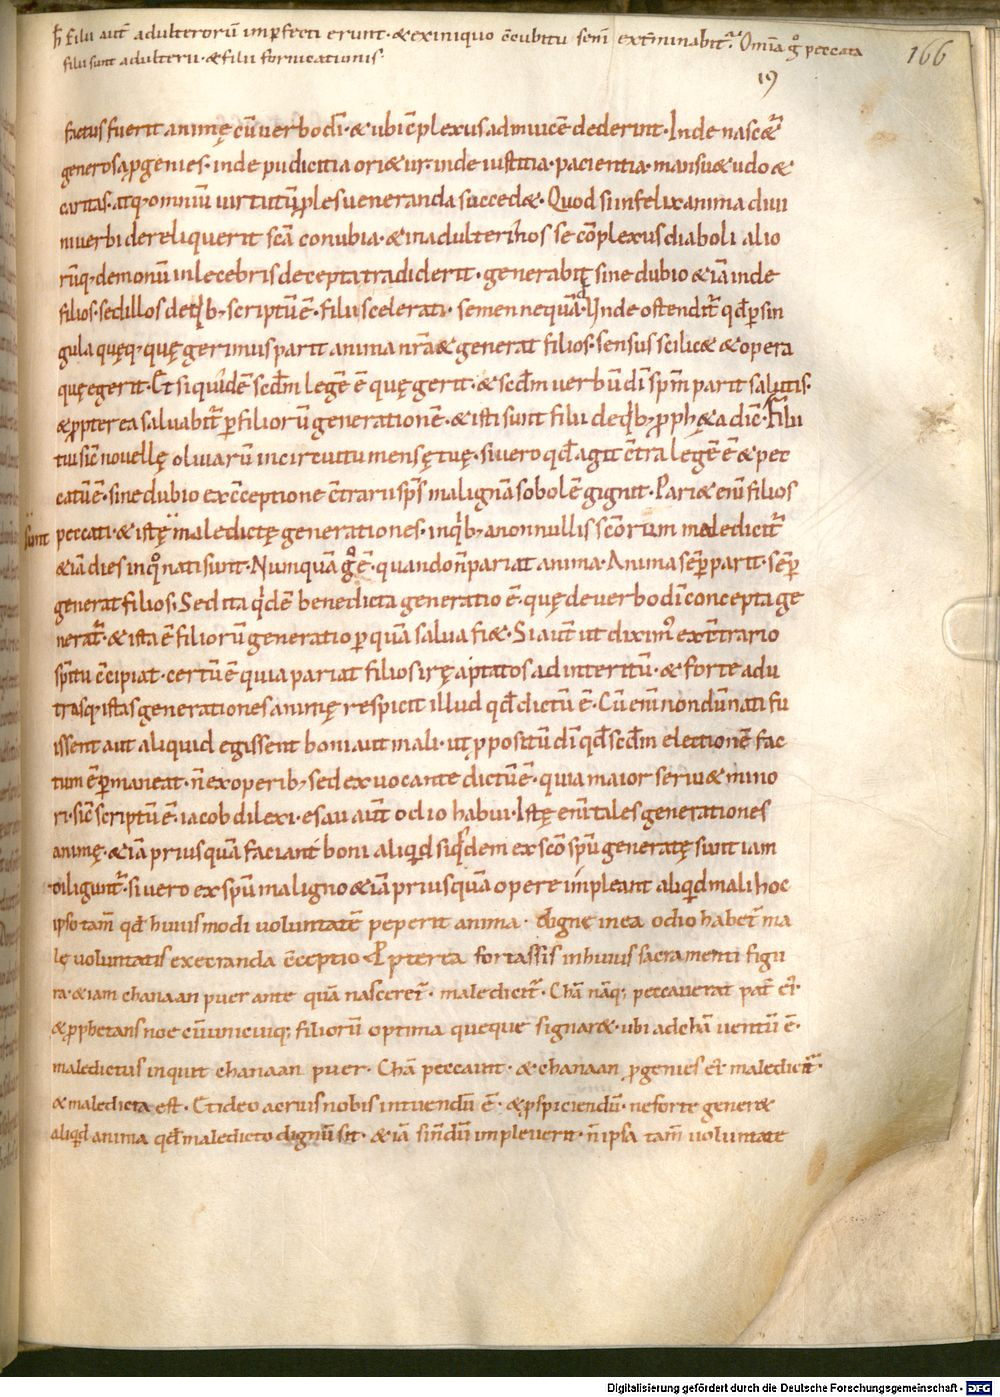 h̅ Filii aut̅ adulterorū imp̱fecti erunt · & ex iniquo c̅cubitu sem̅ ext̅minabit᷑. Om̅ia gͦ peccata
filii sunt adulterii · & filii fornicationis·
166
19
factus fuerit animę cū verbo dī · & ubi c̅plexus ad inuicē dederint · Inde nasc&᷑
generosa ꝓgenies · inde pudicitia ori&ur · inde iustitia · pacientia · mansu&udo &
caritas · atq; omniū uirtutū ꝓles ueneranda succed& · Quod si infelix anima diui
ni uerbi dereliquerit sc̅a conubia · & in adulterinos se cōplexus diaboli alio
rūq; demonū inlecebris decepta tradiderit · generabit᷑ sine dubio & iā inde
filios · sed illos de qͥb; scriptū ē · filii scelerati · semen nequā · Unde ostendit᷑ qd̅ ꝑ sin
gula quęq; quę gerimus parit anima nr̅a & generat filios · sensus scilic& & opera
quę egerit · Et siquidē scd̅m legē ē quę gerit · & scd̅m uerbū dī sp̅m parit salutis ·
& ꝓpterea saluabit᷑ ꝑ filiorū generationē · & isti sunt filii de qͥb; ꝓph&a dic̅ · Filii
tui sic̅ nouellę oliuarū in circuitu mensę tuę · si uero qd̅ agit c̅tra legē ē & pec
catū ē · sine dubio ex c̅ceptione c̅trarii sp̅s malignā sobolē gignit · Pari& eni̅ filios
peccati · & istę sunt maledictę generationes · in qͥb; a nonnullis sc̅orum maledicit᷑
& iā dies in qͦ nati sunt · Numquā gͦ ē · quando n̅ pariat anima · Anima semꝑ parit · semꝑ
generat filios · Sed ita qͥdē benedicta generatio ē · quę de uerbo dī concepta ge
nerat᷑ · & ista ē filiorū generatio ꝑ quā salua fi& · Si aut̅ ut diximꝰ ex c̅trario
sp̅itu c̅cipiat · certū ē quia pariat filios irę aptatos ad interitū · & forte ad u
trasq; istas generationes animę respicit illud qd̅ dictū ē · Cū eni̅ nondū nati fu
issent aut aliquid egissent boni aut mali · ut ꝓpositū dī qd̅ scd̅m electionē fac
tum ē ꝑmaneat · n̅ ex operib; sed ex uocante dictū ē · quia maior serui& mino
ri · sic̅ scriptū ē · iacob dilexi · esau aut̅ odio habui · Istę eni̅ tales generationes
animę · & iā priusquā faciant boni aliqͥd siqͥdem ex sc̅o sp̅u generatę sunt iam
diligunt᷑ · si uero ex sp̅u maligno & iā priusquā opere impleant aliqͥd mali hoc
ipso tam̅ qd̅ huiusmodi uoluntatē peperit anima · digne in ea odio habet᷑ ma
lę uoluntatis execranda c̅ceptio Ꝓpterea fortassis in huius sacramenti figu
ra · & iam chanaan puer ante quā nasceret᷑ · maledicit᷑ · Chā nāq; peccauerat pat̅ ei᷑
& ꝓph&ans noe cū unicuiq; filiorū optima queque signar& · ubi ad chā uentū ē ·
maledictus inquit chanaan puer · Chā peccauit · & chanaan ꝓgenies ei᷑ maledicit᷑ ·
& maledicta est · Et ideo acrius nobis intuendū ē · & ꝑspiciendū · ne forte gener&
aliqͥd anima qd̅ maledicto dignū sit · & iā si n̅dū impleuerit · n̅ ipsa tam̅ uoluntate
Digitalisierung gefördert durch die Deutsche Forschungsgemeinschaft - DFG